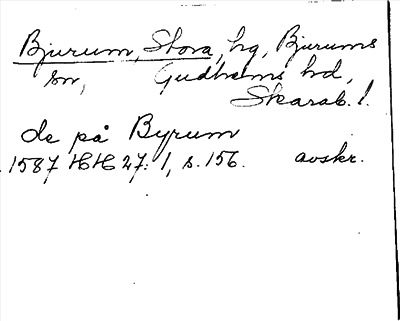 Bjurum, Stora, hg, Bjurums
sn, Gudhems hd,
Skarab. l.
de på Byrum
1587 HH 27: 1, s. 156. avskr.